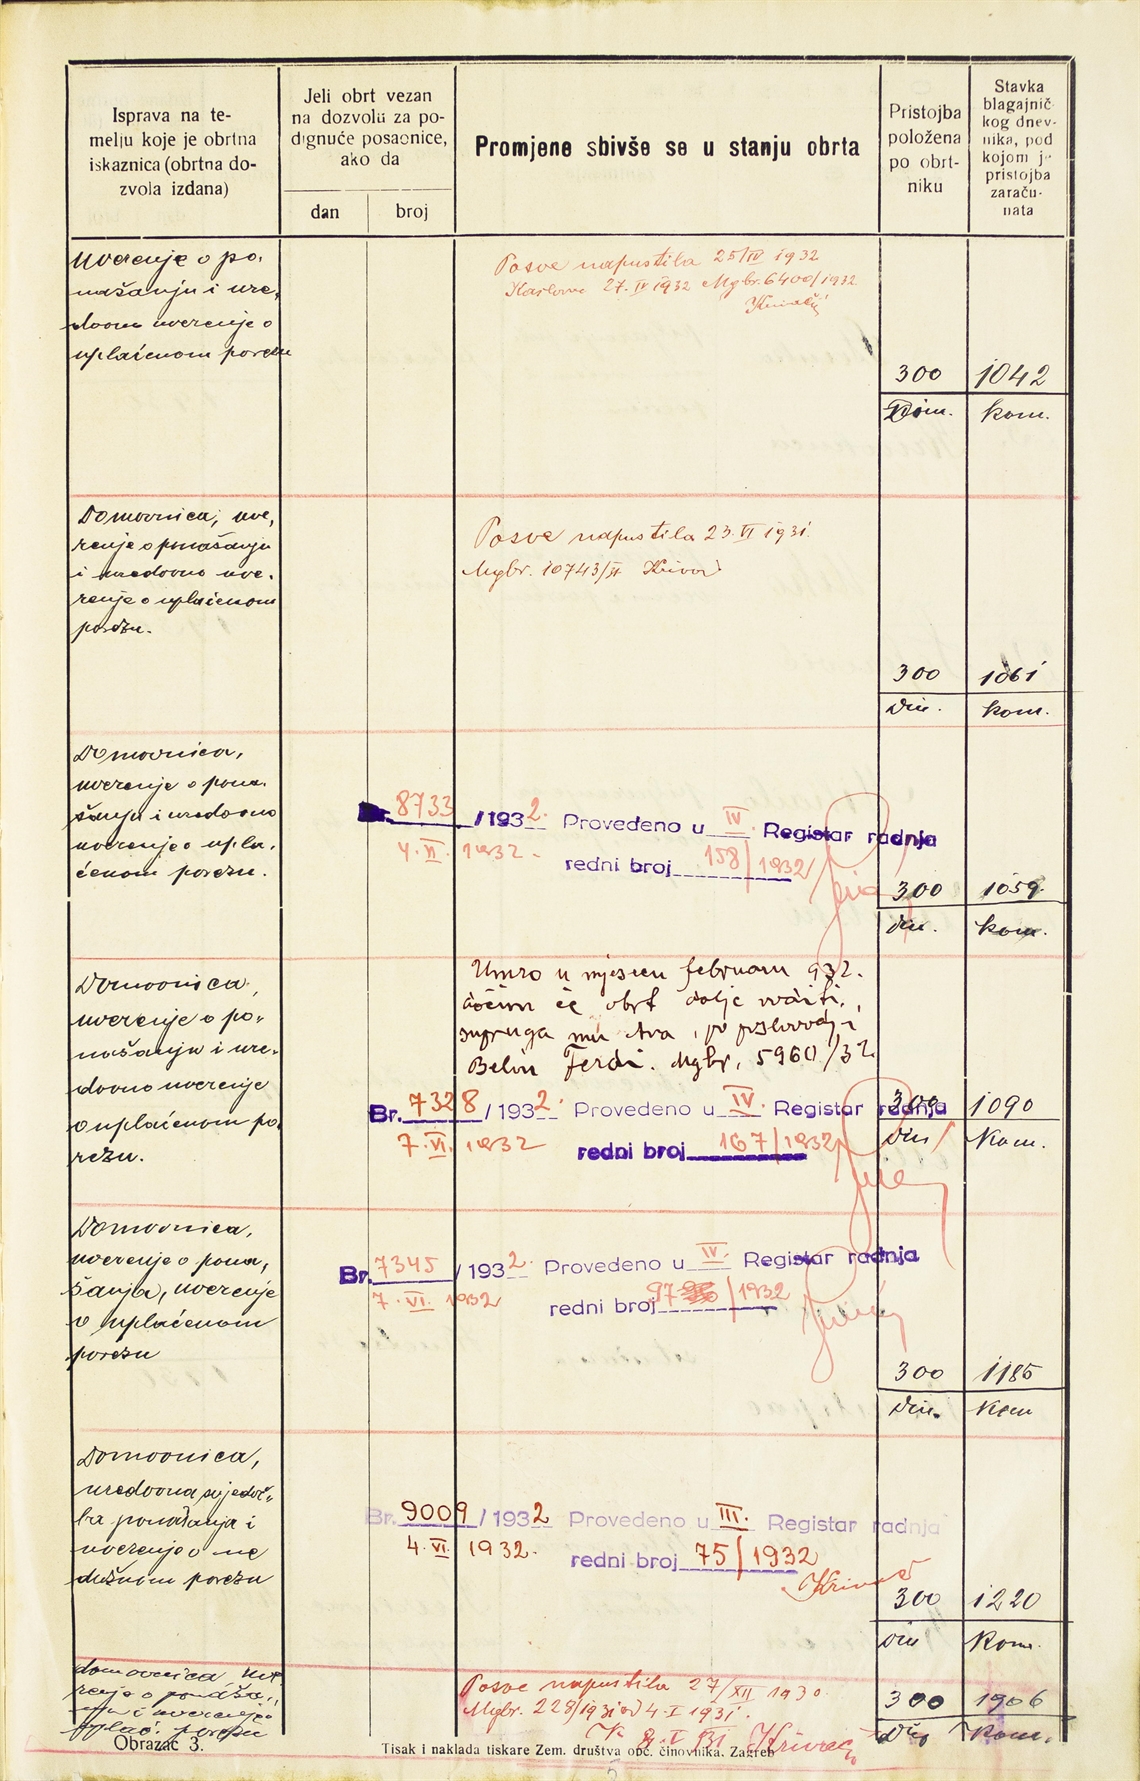 Isprava na te-
melju koje je obrtna
iskaznica (obrtna do-
zvola izdana)
Jeli obrt vezan
na dozvolu za po-
dignuće posaonice,
ako da
dan
broj
Promjene sbivše se u stanju obrta
Pristojba
položena
po obrt-
niku
Stavka
blagajnič-
kog dnev-
nika, pod
kojom je
pristojba
zaraču-
nata
Uverenje o po-
našanju i ure-
dovno uverenje o
uplaćenom porezu
Posve napustila 25/IV 1932
27. IV 1932 Mgbr. 6400/1932
300
1042
Din.
kom.
Domovnica, uve-
renje o ponašanju
i uredovno uve-
renje o uplaćenom
porezu.
Posve napustila 23. VI 1931.
Mgbr. 10743/31
300
1061
Din.
kom.
Domovnica,
uverenje o pona-
šanju i uredovno
uverenje o upla-
ćenom porezu.
Br. 8733 /1932. Provedeno u IV Registar radnja
1932. redni broj 158/1932
300
1059.
din.
kom.
Domovnica,
uverenje o po-
našanju i ure-
dovno uverenje
o uplaćenom po-
rezu.
Umro u mjesecu februaru 932.
će obrt dalje voditi
supruga mu po poslovodji
Ferdi. Mgbr. 5960/32
Br. 7328 /1932. Provedeno u IV. Registar radnja
7. VI. 1932 redni broj 167/1932
300
1090
din
Kom.
Domovnica,
uverenje o pona-
šanju, uverenje
o uplaćenom
porezu
Br. 7345 /1932. Provedeno u IV. Registar radnja
7. VI. 1932 redni broj 97 /1932
300
1185
Din.
Kom
Domovnica,
uredovna svjedo-
ba ponašanja i
uverenje o ne
dužnom porezu
Br. 9009 /1932 Provedeno u III. Registar radnja
4. VI. 1932. redni broj 75/1932
Krivač
300
1220
Din
Kom.
domovnica uve-
renje o ponaša-
nju i uverenje o
uplać. porezu
Posve napustila 27/XII 1930.
Mgbr. 228/1931 od 4. I 1931.
Krivač
300
1906
Din
Kom.
Obrazac 3.
Tisak i naklada tiskare Zem. društva opć. činovnika, Zagreb